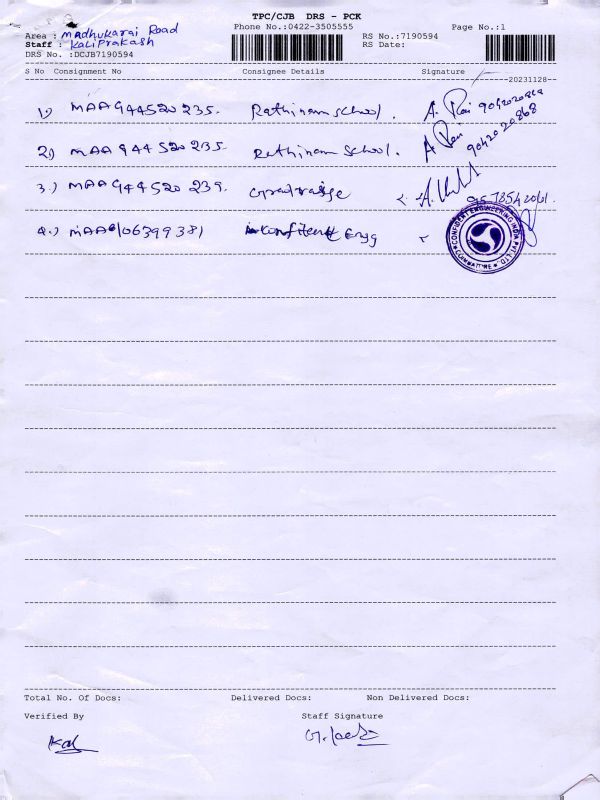 TPC/CJB DRS - PCK
Phone No.:0422-3505555 Page No.:1
Area : Madhukarai Road
Staff : KaliPrakash
RS No.:7190594
RS Date:
DRS No. :DCJB7190594
S No Consignment No Consignee Details Signature
20231128
1) MAA944520235. Rathinam School.
A. Rai 9042020868
2) MAA944520235. Rathinam School.
A Rai 9042020868
3.) MAA944520239.
4.) MAA 106399381 Confident Engg
CONFIDENT ENGINEERING INDIA PVT. LTD. COIMBATORE
Total No. Of Docs: Delivered Docs: Non Delivered Docs:
Verified By Staff Signature